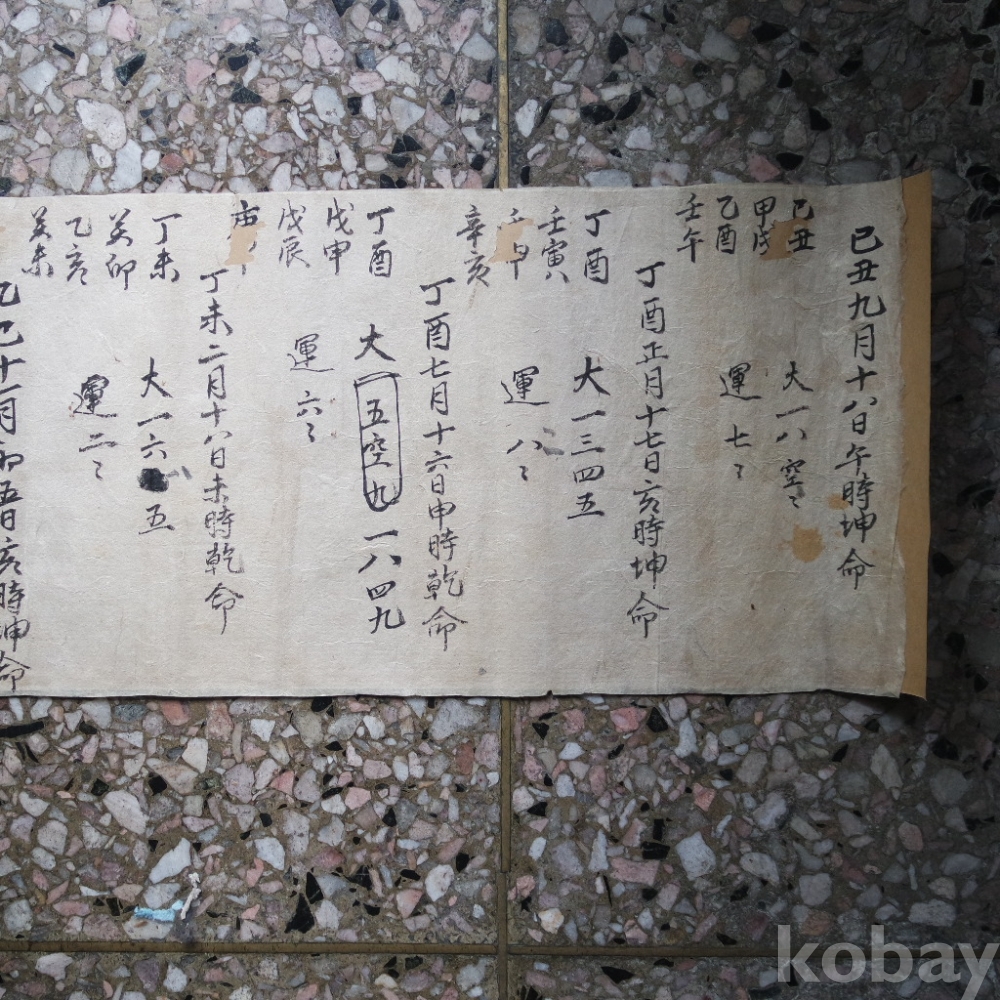 己丑九月十八日午時坤命
己丑
甲戌
乙酉
壬午
大一八空〻
運七〻
丁酉正月十七日亥時坤命
丁酉
壬寅
壬午
辛亥
大一三四五
運八〻
丁酉七月十六日申時乾命
丁酉
戊申
戊辰
大五空九一八四九
運六〻
丁未二月十八日未時乾命
丁未
癸卯
乙亥
癸未
大一六五
運二〻
乙巳十一月初五日亥時坤命
kobay